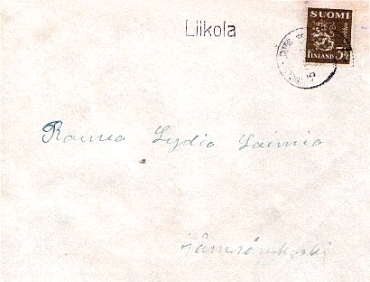 Liikola
SUOMI
FINLAND 3½
Rauna Lydia Laimio
Jämsänkoski